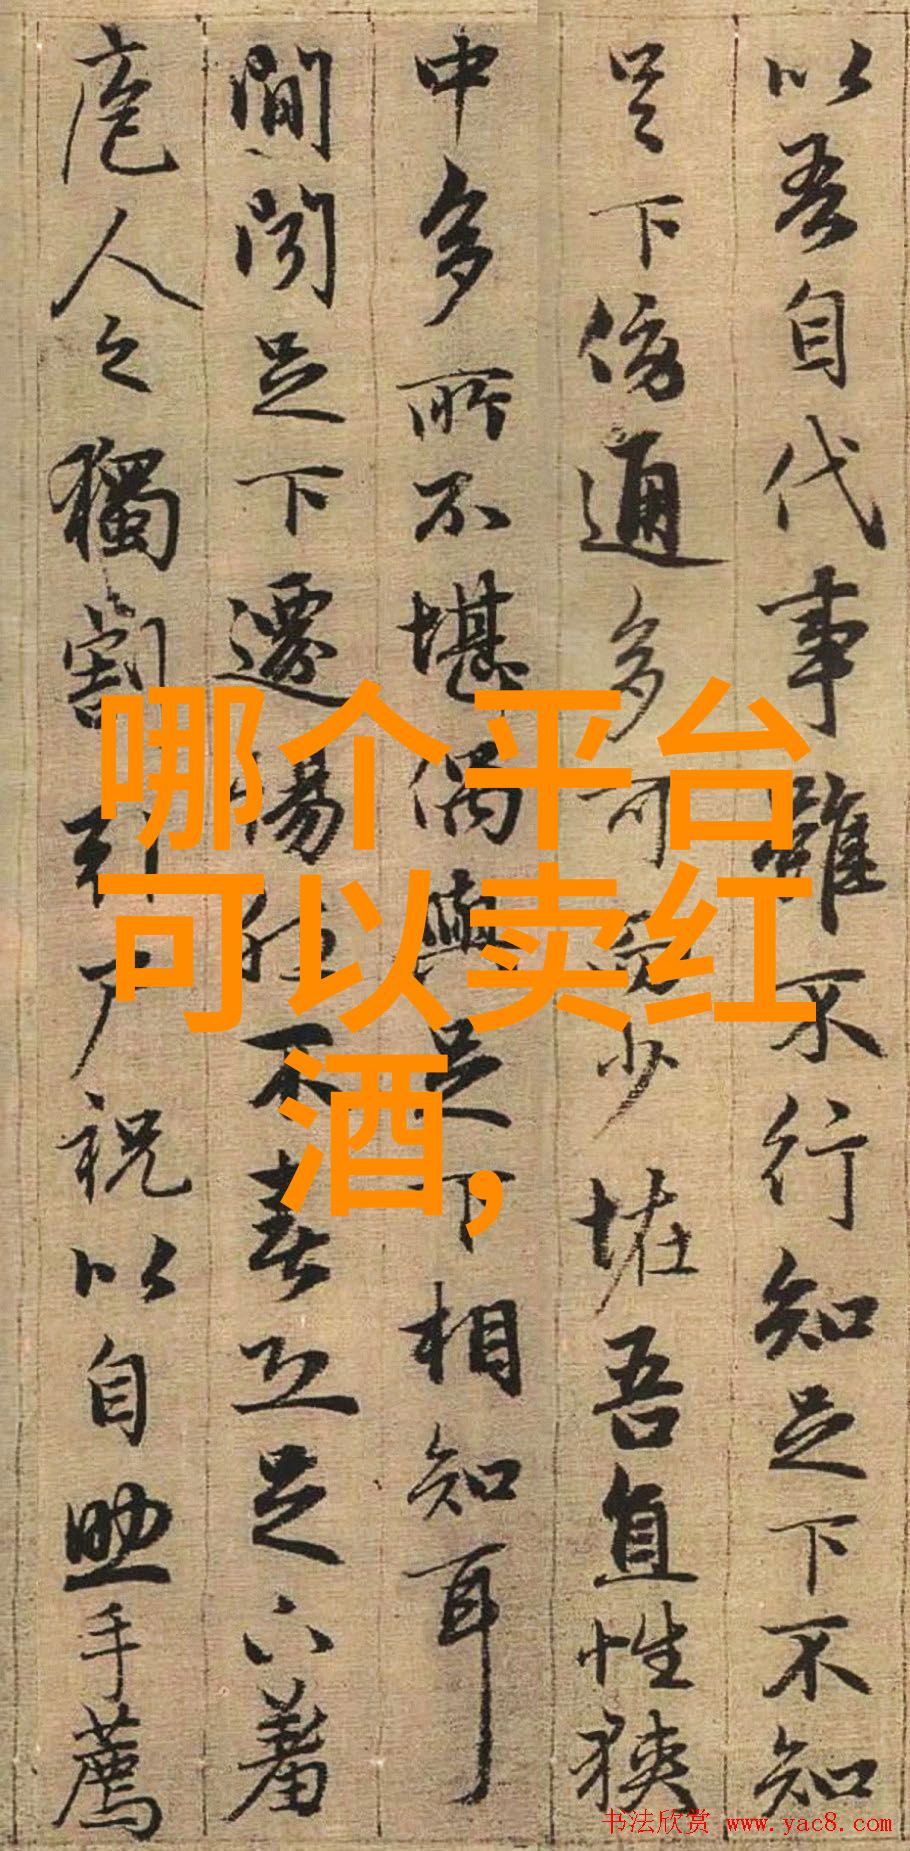 以吾自代事雖不行知足下不知
足下傍通多可而少恠吾直性狹
中多所不堪偶與足下相知耳
間聞足下遷惕然不喜恐足下羞
庖人之獨割引尸祝以自助手薦
哪个平台
可以卖红
酒,
书法欣赏 www.yac8.com